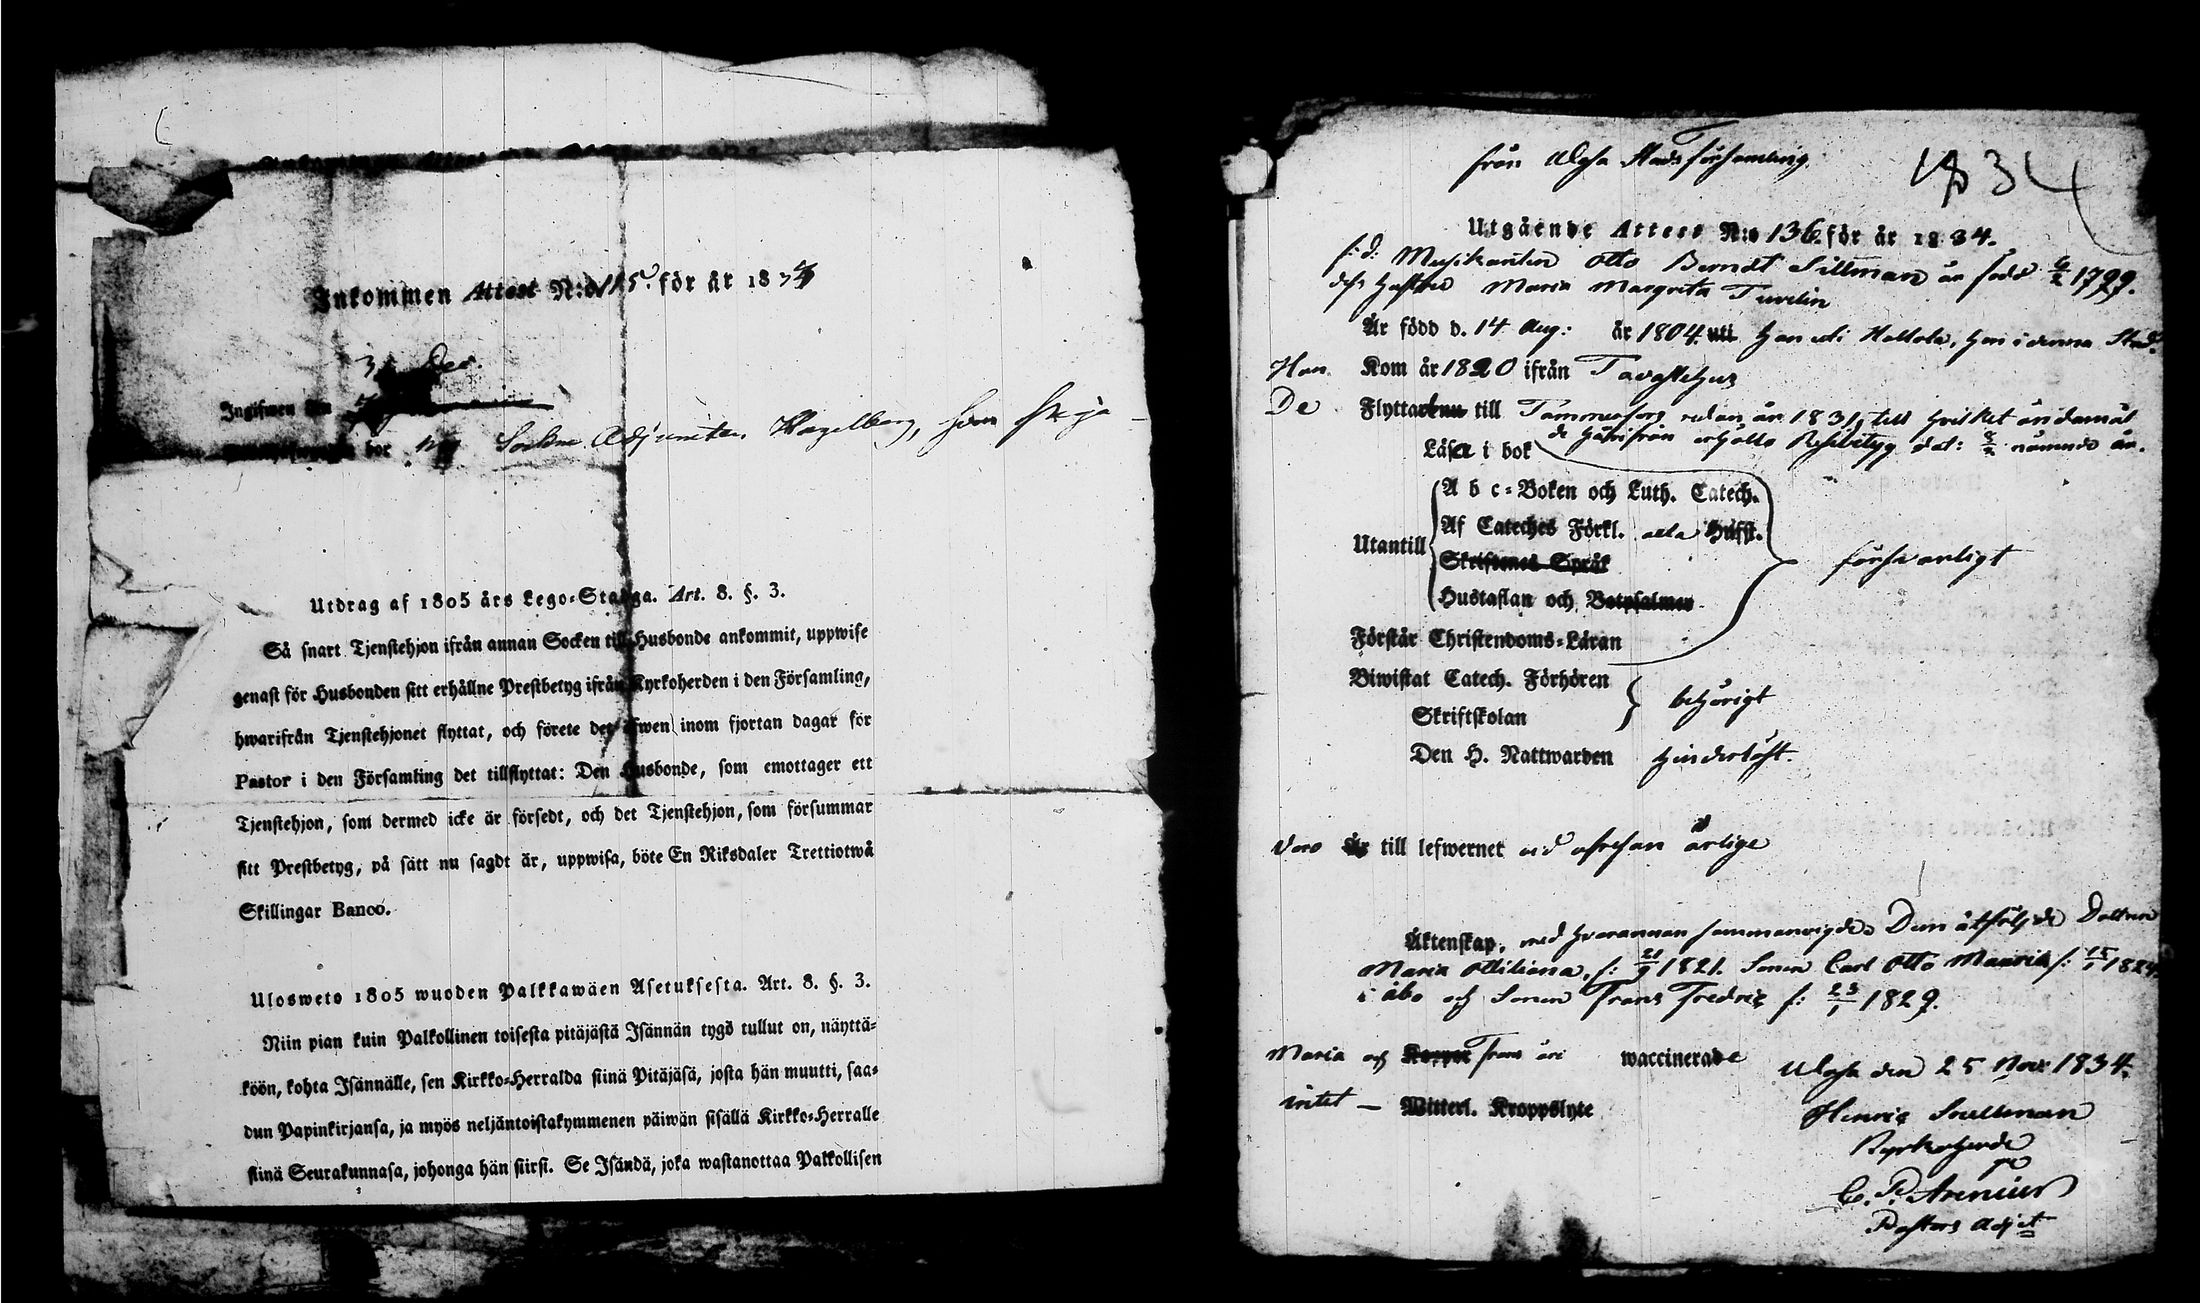 Inkommen Attest N:o 115 för år 1834
3 Dec.
Ingifwen den
bor Sockne Adjuncten Hagelberg, som
Utdrag af 1805 års Lego-Stadga. Art. 8. §. 3.
Så snart Tjenstehjon ifrån annan Socken till Husbonde ankommit, uppwise
genast för Husbonden sitt erhållne Prestbetyg ifrån Kyrkoherden i den Församling,
hwarifrån Tjenstehjonet flyttat, och förete det äfwen inom fjortan dagar för
Pastor i den Församling det tillflyttat: Den Husbonde, som emottager ett
Tjenstehjon, som dermed icke är försedt, och det Tjenstehjon, som försummar
sitt Prestbetyg, på sätt nu sagdt är, uppwisa, böte En Riksdaler Trettiotwå
Skillingar Banco.
Ulosweto 1805 wuoden Palkkawäen Asetuksesta. Art. 8. §. 3.
Niin pian kuin Palkollinen toisesta pitäjästä Isännän tygö tullut on, näyttä=
köön, kohta Isännälle, sen Kirkko=Herralda siinä Pitäjäsä, josta hän muutti, saa=
dun Papinkirjansa, ja myös neljäntoistakymmenen päiwän sisällä Kirkko=Herralle
siinä Seurakunnasa, johonga hän siirsi. Se Isändä, joka wastanottaa Palkollisen
från Uloga Stads Församling
1834
Utgående Attest N:o 136 för år 1834.
f:d: Musikanten Otto Berndt Sillman är född 6/2 1799.
dess Hustru Maria Margreta Tuvelin
Är född d. 14 Aug: år 1804. uti Han uti Hollola, hon i denna Stad.
Han Kom år 1820 ifrån Tavastehus
De Flyttade till Tammerfors redan år 1831, till hvilket ändamål
de härifrån erhöllo Resebetyg dat: nämnde år.
Läsa i bok
A b c=Boken och Luth. Catech.
Af Cateches Förkl. alla Hufst.
Utantill
Skriftenes Språk
Hustaflan och Botpsalmer
försvarligt
Förstår Christendoms=Läran
Biwistat Catech. Förhören
Skriftskolan
behörigt
Den H. Nattwarden hinderlöst.
voro Är till lefwernet vid afresan ärlige
Äktenskap, med hvarannan sammanvigde. Dem åtföljde Dottren
Maria Ottiliana, f: 21/9 1821. Sonen Carl Otto Mauritz f: 15/1 1824
i Åbo och Sonen Frans Fredric f: 23/1 1829.
Maria och Frans äro waccinerade
intet — Witterl. Kroppslyte
Uloga den 25 Nov: 1834.
Henric Snellman
Kyrkoherde
C. P. Arenius
Pastors Adjt